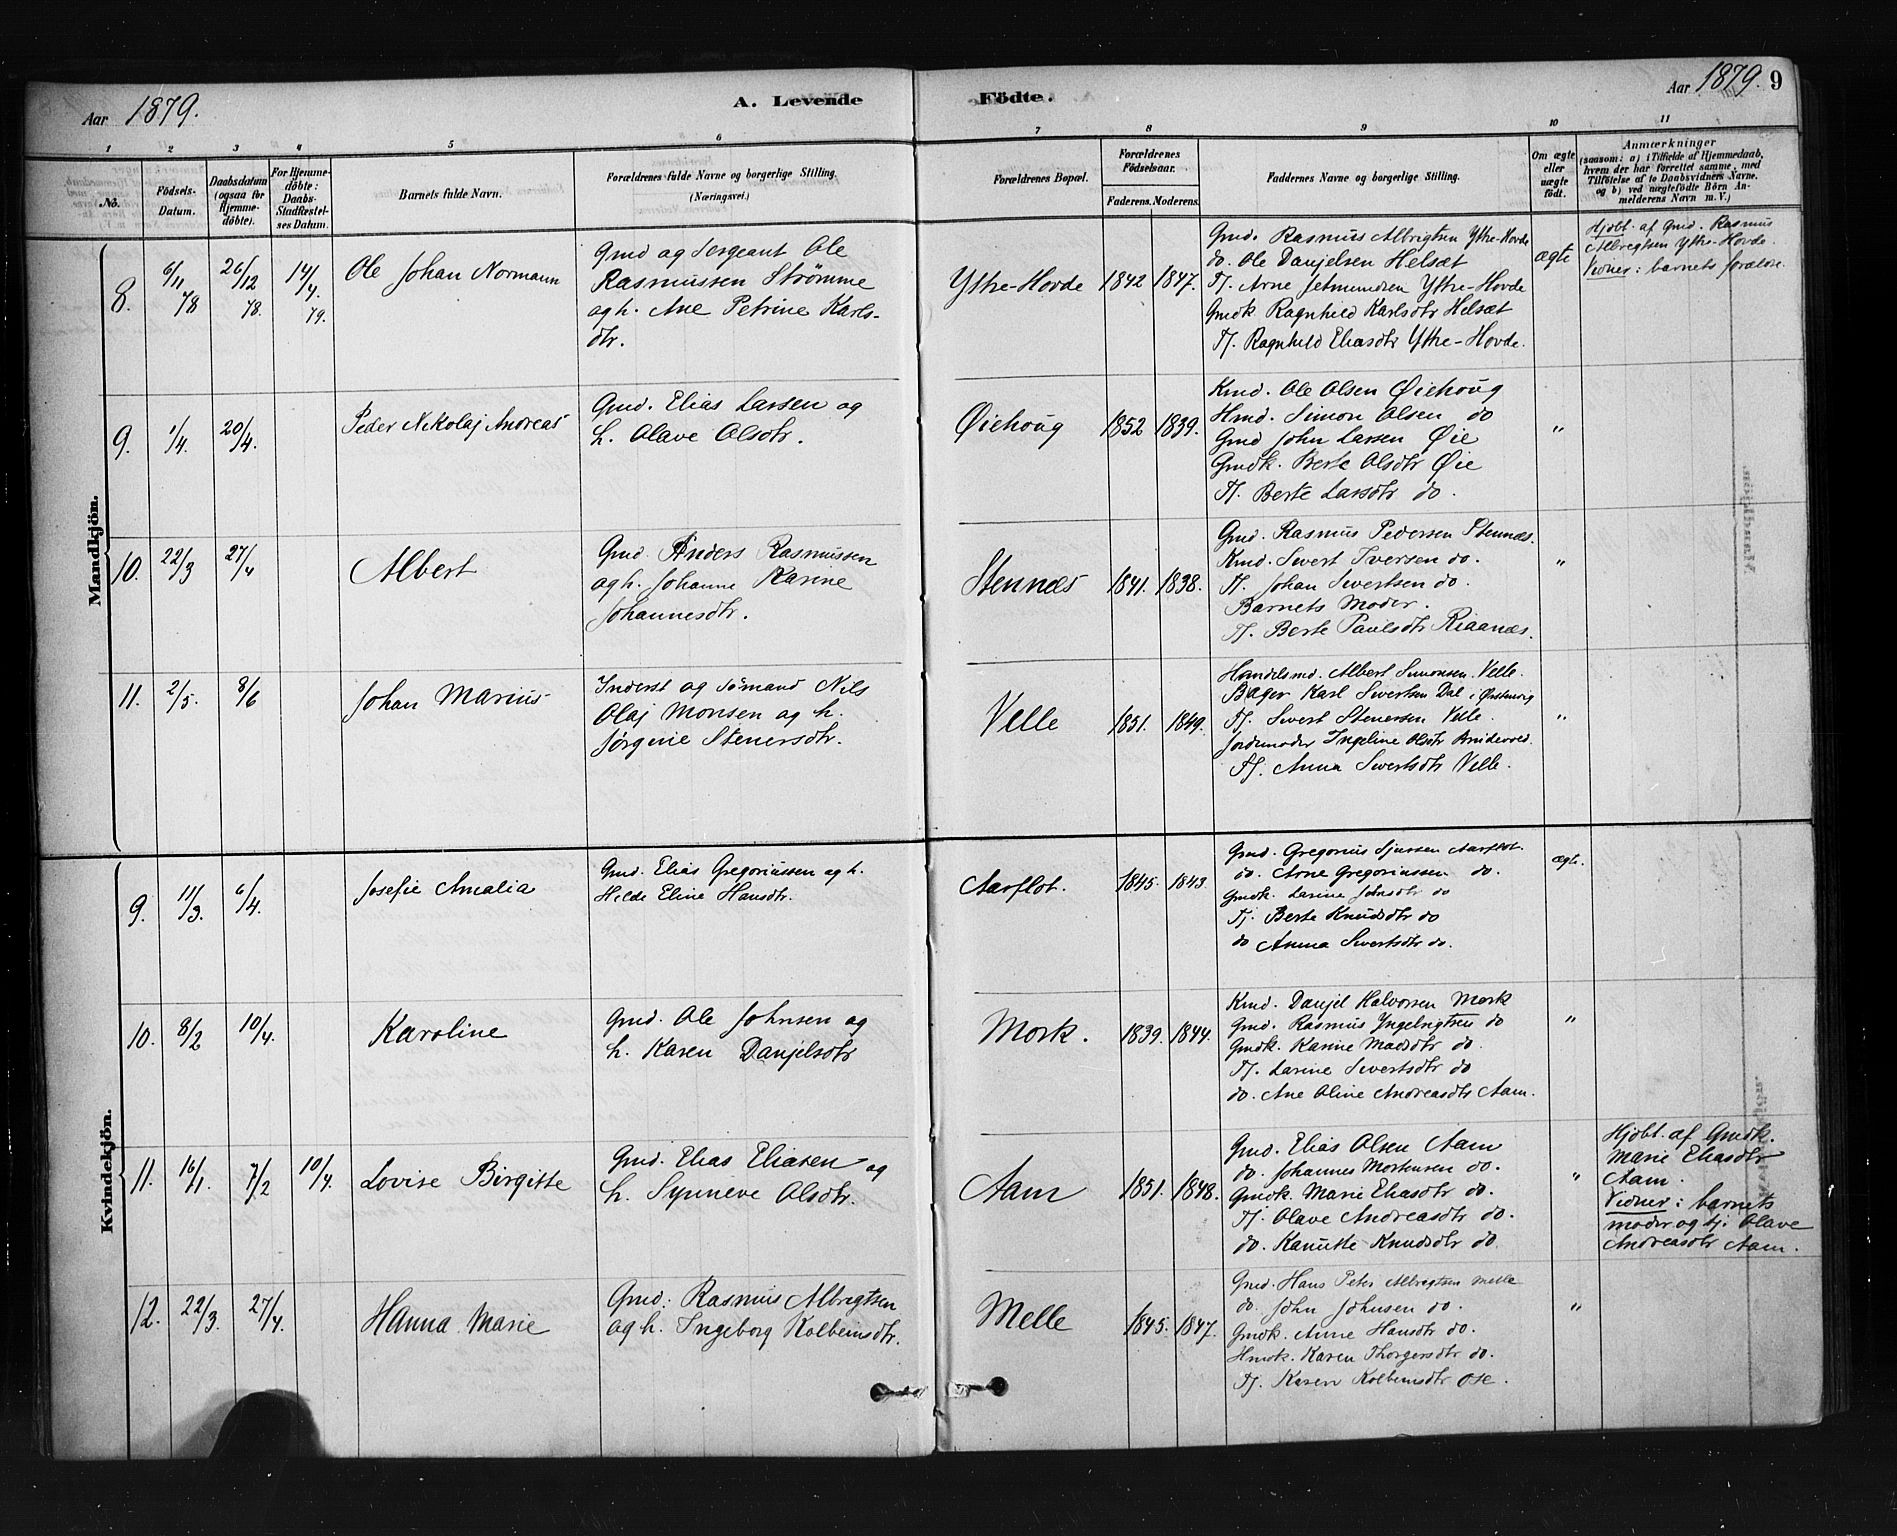 Aar 1879.
A. Levende
Födte.
Aar 1879. 9
1 2 3 4 5 6 7 8 9 10 11
No.
Födsels-Datum.
Daabsdatum (ogsaa for Hjemme-döbte).
For Hjemme-döbte: Daabs-Stadfæstel-ses Datum.
Barnets fulde Navn.
Forældrenes fulde Navne og borgerlige Stilling.
(Næringsvei.)
Forældrenes Bopæl.
Forældrenes Födselsaar.
Faderens. Moderens.
Faddernes Navne og borgerlige Stilling.
Om ægte eller uægte födt.
Anmærkninger
(saasom: a) i Tilfælde af Hjemmedaab, hvem der har forrettet samme, med Tilföielse af to Daabsvidners Navne, og b) ved uægtefödte Börn Anmelderens Navn m. V.)
Mandkjön.
8. 6/11 78 26/12 78. 14/4. 79.
Ole Johan Normann
Gmd og Sergeant Ole
Rasmussen Strömme
og h. Ane Petrine Karls-
dtr.
Ytre-Hovde 1842 1847.
Gmd. Rasmus Albrigtsen Ytre-Hovde
do. Ole Danjelsen Helsæt
Tj. Arne Jetmundsen Ytre-Hovde
Gmdk. Ragnhild Karlsdtr Helsæt
Tj. Ragnhild Eliasdtr Ytre-Hovde.
ægte
Hjdbt. af Gmd. Rasmus
Albregtsen Ytre-Hovde.
Vidner: barnets forældre.
9. 1/4. 20/4.
Peder Nikolaj Andreas
Gmd. Elias Larsen og
h. Olave Olsdtr.
Øiehoug 1852 1839.
Kmd. Ole Olsen Øiehoug
Hmd. Simon Olsen do
Gmd John Larsen Øie
Gmdk. Berte Olsdtr Øie
Tj. Berte Larsdtr do.
"
10. 22/3 27/4
Albert
Gmd. Anders Rasmussen
og h. Johanne Karine
Johannesdtr.
Stennæs 1841. 1838.
Gmd. Rasmus Pedersen Stennæs.
Kmd. Sivert Iversen do.
Tj. Johan Sivertsen do.
Barnets Moder.
Tj. Berte Paulsdtr Riaanæs.
"
11. 2/5. 8/6
Johan Marius
Inderst og Sömand Nils
Olaj Monsen og h.
Jörgine Stenersdtr.
Velle 1851. 1849.
Handelsmd. Albert Simonsen Velle
Bager Karl Sivertsen Dal i Ørstenvig
Tj. Sivert Stenersen Velle.
Jordemoder Ingeline Olsdtr
Tj. Anna Sivertsdtr Velle.
"
Kvindekjön.
9. 11/3. 6/4.
Josefie Amalia
Gmd. Elias Gregoriussen og h.
Hilde Eline Hansdtr.
Aarflot. 1845. 1843.
Gmd. Gregorius Sjursen Aarflot.
do. Arne Gregoriussen do.
Gmdk. Larine Johnsdtr do
Tj. Berte Knudsdtr do
do Anna Sivertsdtr do.
ægte.
10. 8/2 10/4.
Karoline
Gmd. Ole Johnsen og
h. Karen Danjelsdtr
Mork. 1839. 1844.
Kmd. Danjel Halvorsen Mork
Gmd. Rasmus Yngelrigtsen do
Gmdk. Karine Madsdtr do.
Tj. Larine Sivertsdtr do
do. Ane Oline Andreasdtr Aam.
"
11. 16/1. 7/2 10/4.
Lovise Birgitte
Gmd. Elias Eliasen og
h. Synneve Olsdtr.
Aam 1851. 1848.
Gmd. Elias Olsen Aam
do. Johannes Mortensen do.
Gmdk. Marie Eliasdtr do.
Tj. Olave Andreasdtr do.
do. Kanutte Knudsdtr do.
"
Hjdbt. af Gmdk.
Marie Eliasdtr
Aam.
Vidner: barnets
moder og tj. Olave
Andreasdtr Aam.
12. 22/3. 27/4.
Hanna Marie
Gmd. Rasmus Albrigtsen
og h. Ingeborg Kolbeinsdtr.
Melle 1845. 1847.
Gmd. Hans Peter Albregtsen Melle
do. John Johnsen do.
Gmdk. Anne Hansdtr do.
Hmdk. Karen Thorgersdtr do.
Tj. Karen Kolbeinsdtr Ose.
"